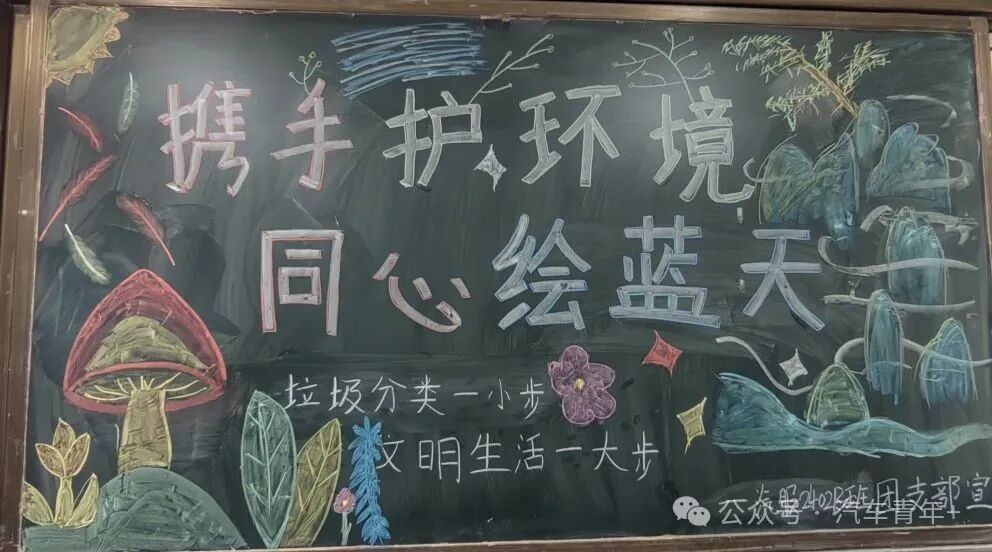 携手护环境
同心绘蓝天
垃圾分类一小步
文明生活一大步
2402班团支部宣
公众号·汽车青年+